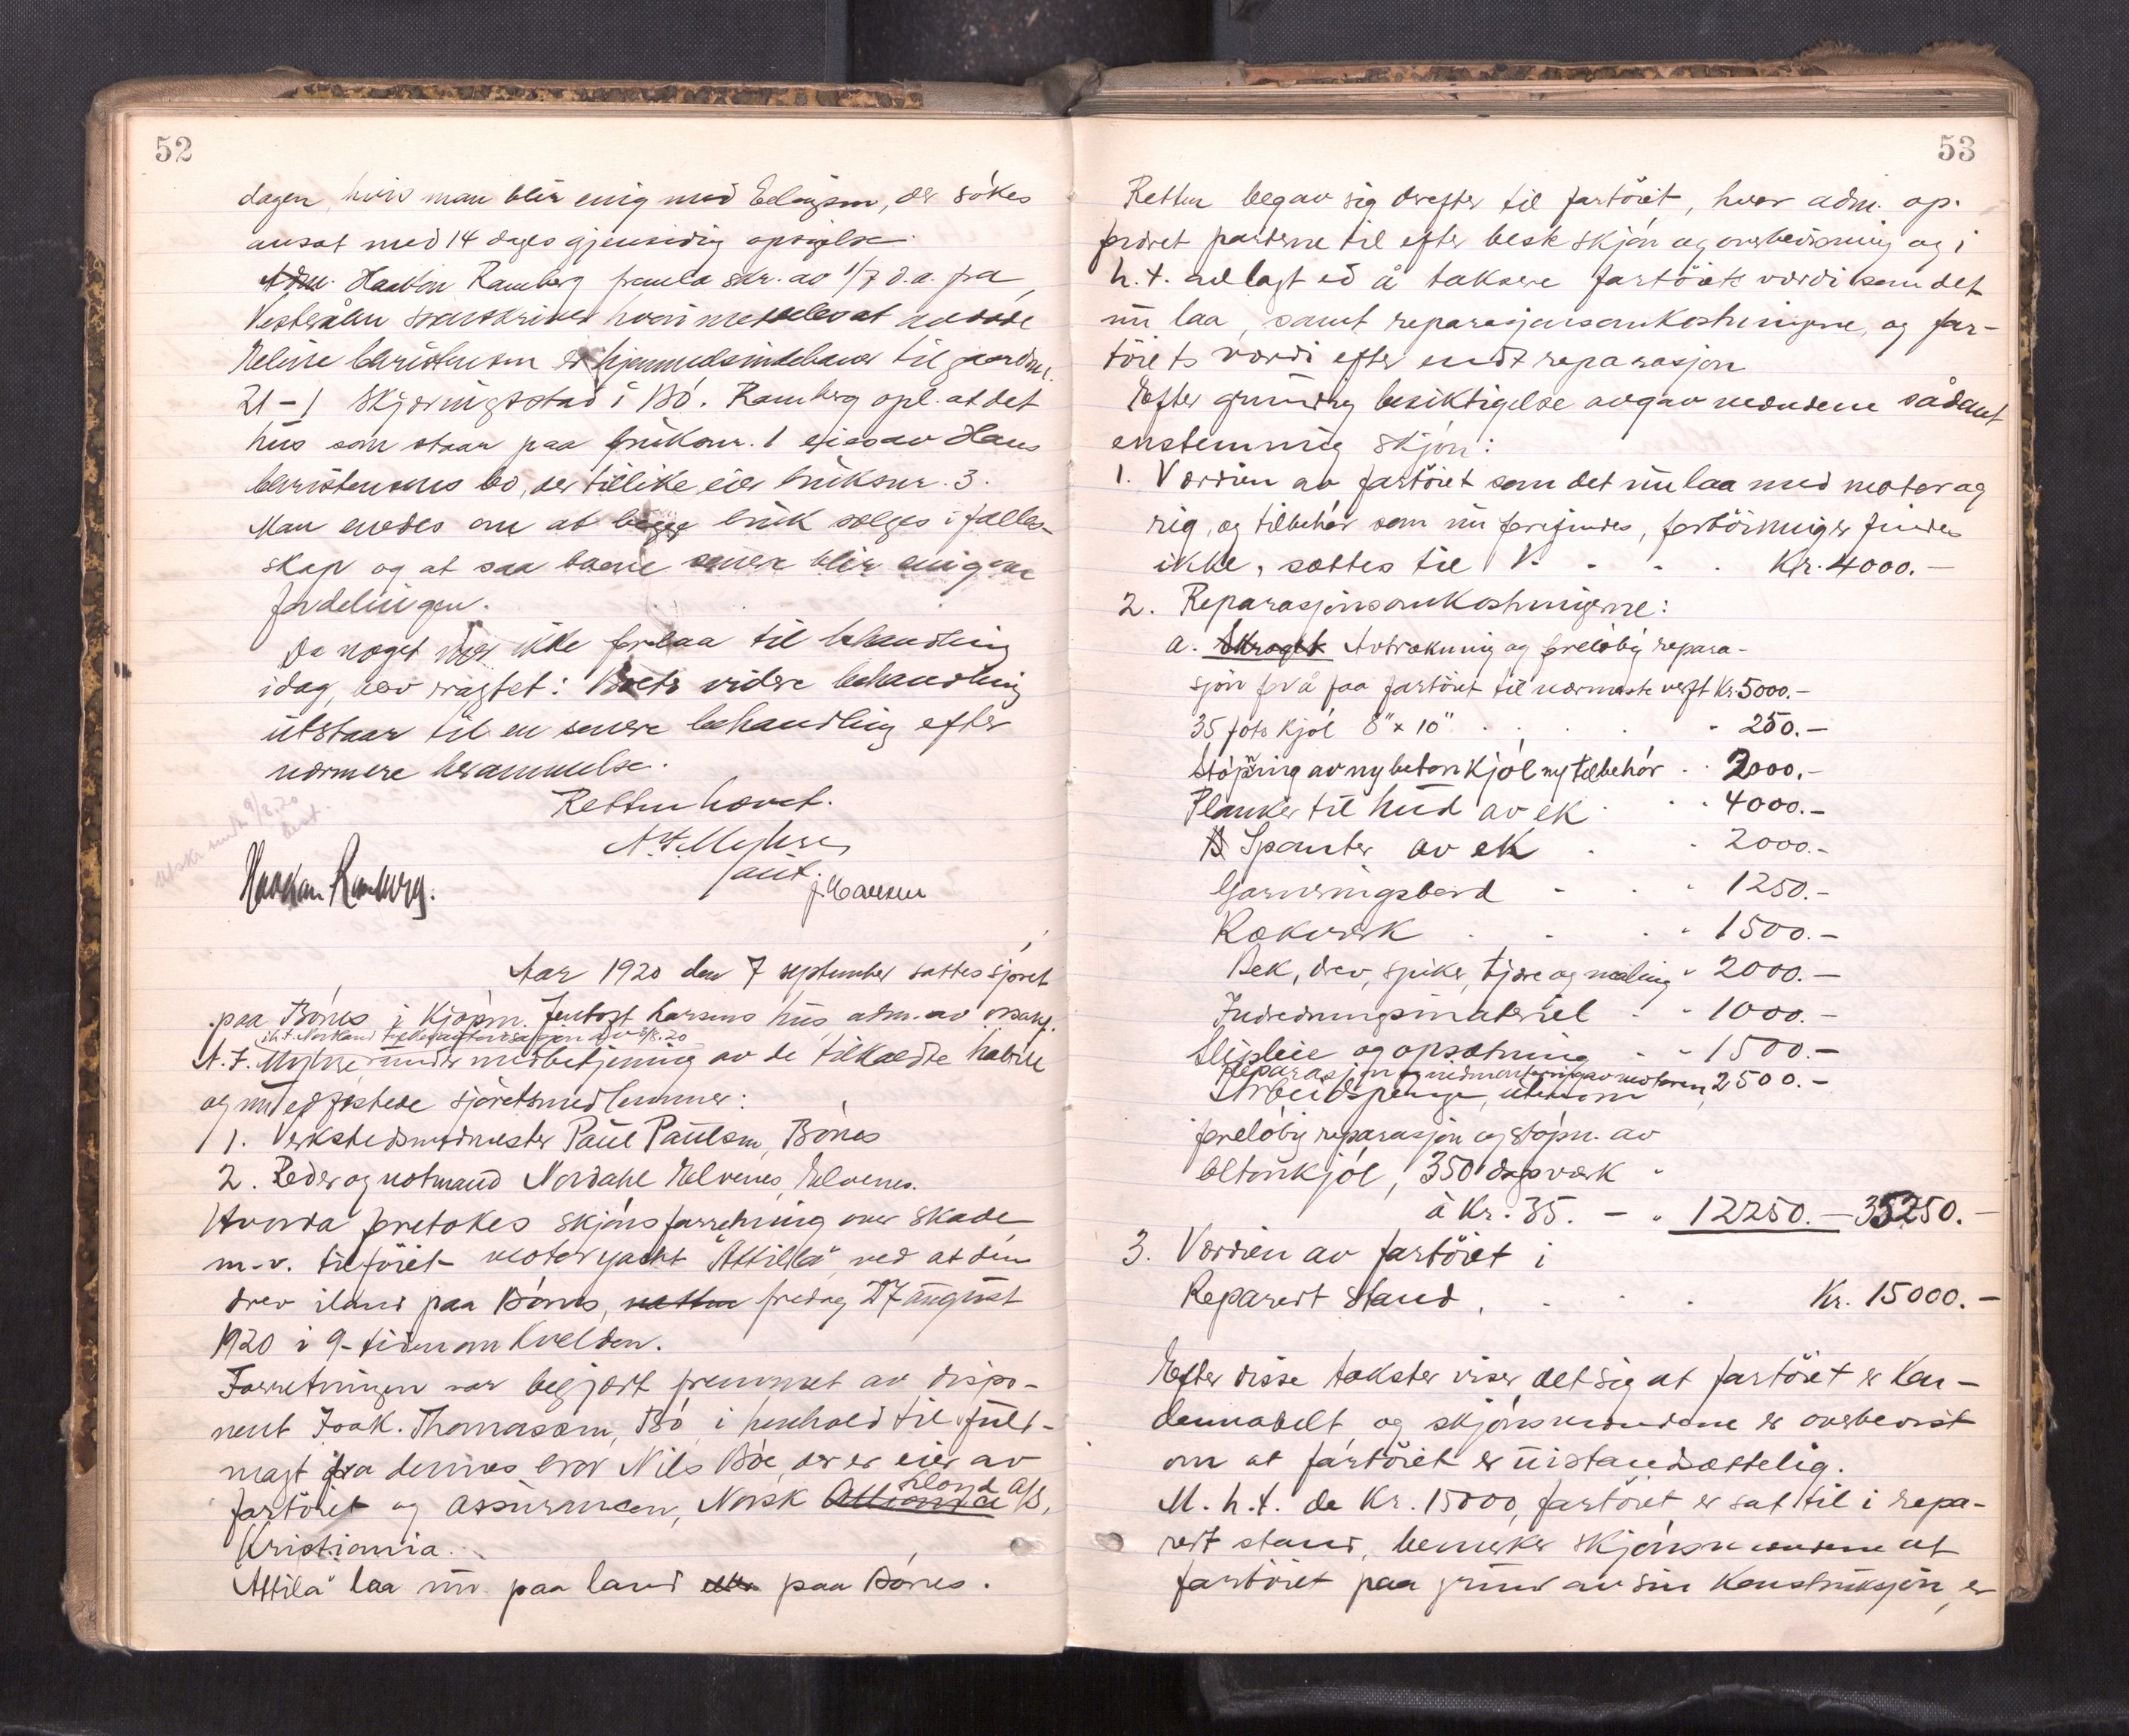 52
dagen, hvis man blir enig med Eelingsen, der søkes
ansat med 14 dages gjensidig opsigelse.
Adm. Haakon Ramberg framla skr. av 1/7 d.a. fra
Vesterålen sorenskriver hvori meddeles at avdøde
Meline Christensen er hjemmelsindehaver til gardsnr.
21-1 Skjæringstad i Bø. Ramberg opl. at det
hus som staar paa bruksnr. 1 eies av Hans
Christensens bo, der tillike eier bruksnr. 3.
Man enedes om at begge bruk sælges i fælles-
skap og at saa boene senere blir enig om
fordelingen.
Da noget mer ikke forelaa til behandling
idag, blev avsagt: Boets videre behandling
utstaar til en senere behandling efter
nærmere berammelse.
Retten hævet.
A. F. Myhre
Haakon Ramberg.
J. Hansen
Utskr. sendt 9/8.20
Aar 1920 den 7 september sattes sjøret
paa Bønes i kjøpm. Jentoft Larsens hus, adm. av
i h.t. Nordland fylkes autorisasjon av 3/8.20
A. F. Myhre, under medbetjening av de tilkaldte habile
og nu edfestede sjøretsmedlemmer:
1. Verkstedsmedmester Paul Paulsen, Bønes
2. Reder og notmand Nordahl Elvenes, Elvenes.
Hvorda foretokes skjønsforretning over skade
m.v. tilføiet motoryacht "Attilla" ved at den
drev iland paa Bønes, natten fredag 27 august
1920 i 9-tiden om kvelden.
Forretningen var begjært fremmet av dispo-
nent Joak. Thomassen, Bø i henhold til full-
magt fra dennes bror Nils Bøe, der er eier av
Lloyd
fartöiet og assurancen, Norsk Allianse A/S,
Kristiania.
"Attila" laa nu paa land paa Bønes.
53
Retten begav sig derefter til fartöiet, hvor adm. op-
fordret parterne til efter beste skjøn og overbevisning og i
h.t. avlagt ed å taksere fartöiets værdi som det
nu laa, samt reparasjonsomkostningerne, og far-
töiets værdi efter endt reparasjon
Efter grundig besiktigelse avgav mændene sådant
enstemmig skjøn:
1. Værdien av fartöiet som det nu laa med motor og
rig, og tilbehør som nu forefindes, fortöininger findes
ikke, sættes til Kr. 4000.-
2. Reparasjonsomkostningerne:
a. Skroget Avtrækning og foreløbig repara-
sjon for å faa fartöiet til nærmeste verft Kr. 5000.-
35 fots kjøl 8" x 10" 250.-
Støpning av ny betonkjøl og tilbehør 2000.-
Planker til hud av ek 4000.-
Spanter av ek 2000.-
Garneringsbord 1250.-
Rækverk 1500.-
Bek, drev, spiker, tjære og maling 2000.-
Indredningsmateriel 1000.-
Slipleie og opsætning 1500.-
Reparasjon og nedmontering av motoren, 2500.-
Arbeidspenger, utenom
foreløbig reparasjon og støpn. av
betonkjøl, 350 dagsværk
à Kr. 35. - 12250.- 35250.-
3. Værdien av fartöiet i
Reparert stand, Kr. 15000.-
Efter disse takster viser det sig at fartöiet er kon-
demnabelt og skjønsmændene er overbevist
om at fartöiet er uistandsættelig.
M.h.t. de Kr. 15000, fartöiet er sat til i repa-
rert stand, bemerker skjønsmændene at
fartöiet paa grund av sin konstruksjon, er